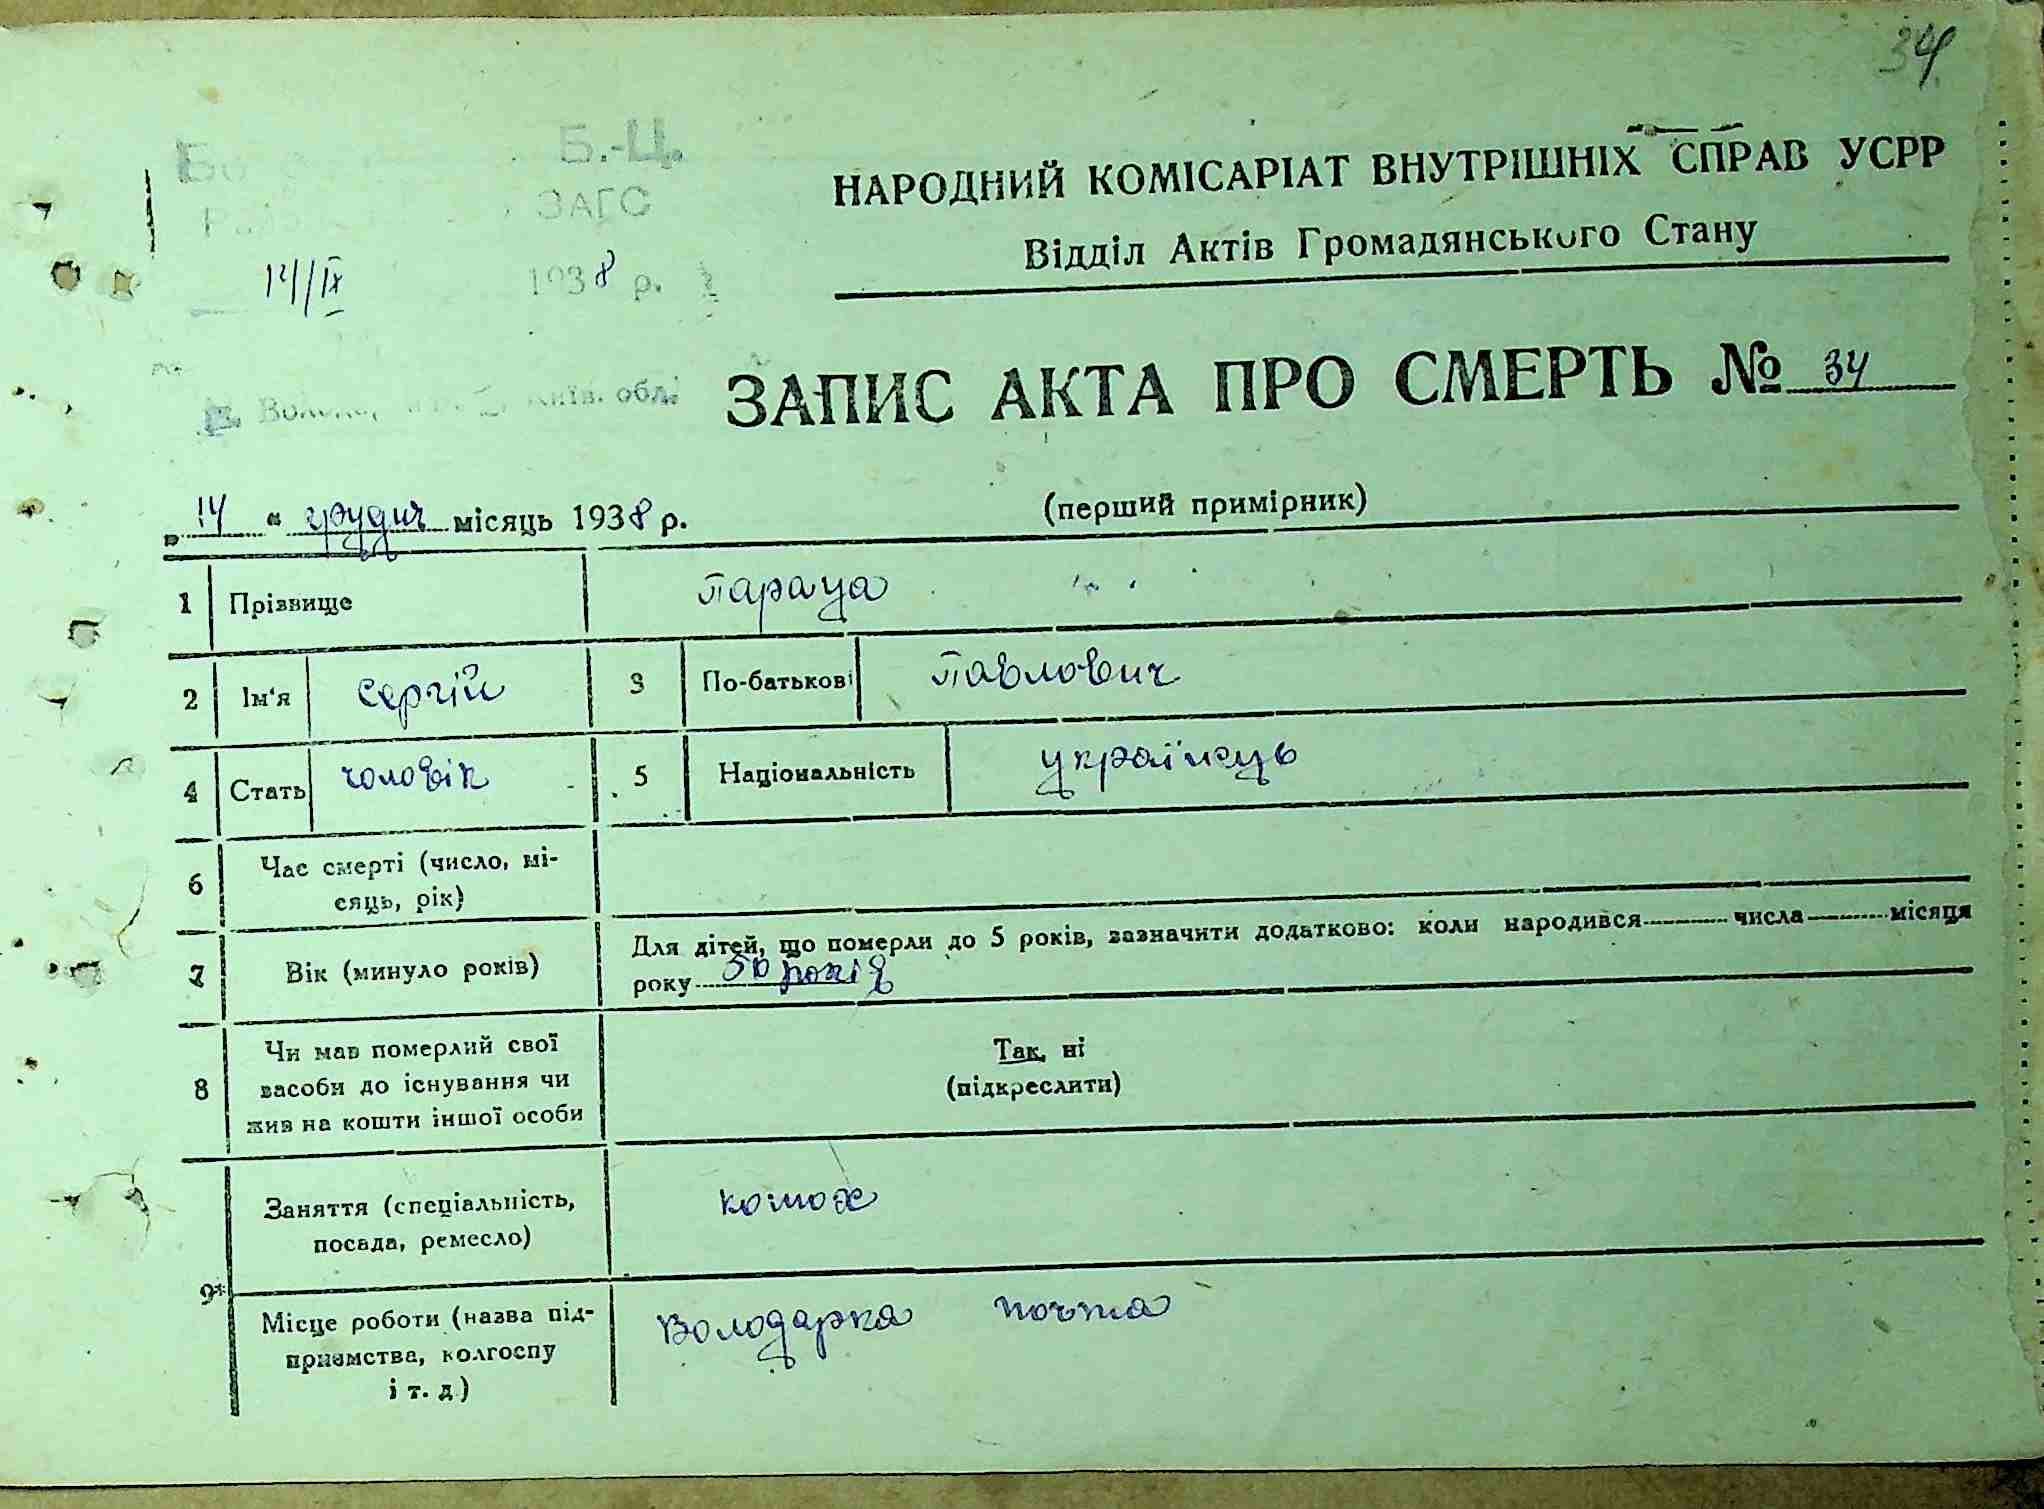 34
Б.-Ц.
ЗАГС
14/IX 1938 р.
Київ. обл.
НАРОДНИЙ КОМІСАРІАТ ВНУТРІШНІХ СПРАВ УСРР
Відділ Актів Громадянського Стану
ЗАПИС АКТА ПРО СМЕРТЬ № 34
(перший примірник)
„14“ грудня місяць 1938 р.
1 Прізвище Параца
2 Ім'я Сергій 3 По-батькові Павлович
4 Стать чоловік 5 Національність українець
6 Час смерті (число, мі-
сяць, рік)
7 Вік (минуло років) Для дітей, що померли до 5 років, зазначити додатково: коли народився числа місяця
року 50 років
8 Чи мав померлий свої
засоби до існування чи
жив на кошти іншої особи
Так, ні
(підкреслити)
9* Заняття (спеціальність,
посада, ремесло)
конюх
Місце роботи (назва під-
приємства, колгоспу
і т. д)
Володарка почта